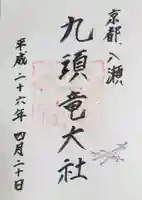 京都 八瀬
九頭竜大社
平成二十六年四月二十日